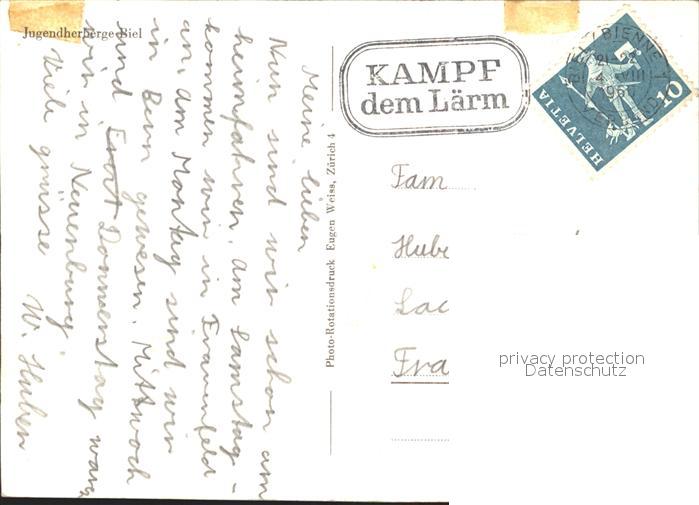 Jugendherberge Biel
Meine lieben
Nun sind wir schon am
heimfahren. am Samstag -
kommen wir in Frauenfeld
an. Am Montag sind wir
in Bern gewesen. Mittwoch
und Donnerstag waren
wir in Neuenburg.
Viele grüsse W. Huber
Photo-Rotationsdruck Eugen Weiss, Zürich 4
KAMPF
dem Lärm
BIENNE 1
VIII
HELVETIA
10
Fam
Hube
Lac
Fra
privacy protection
Datenschutz